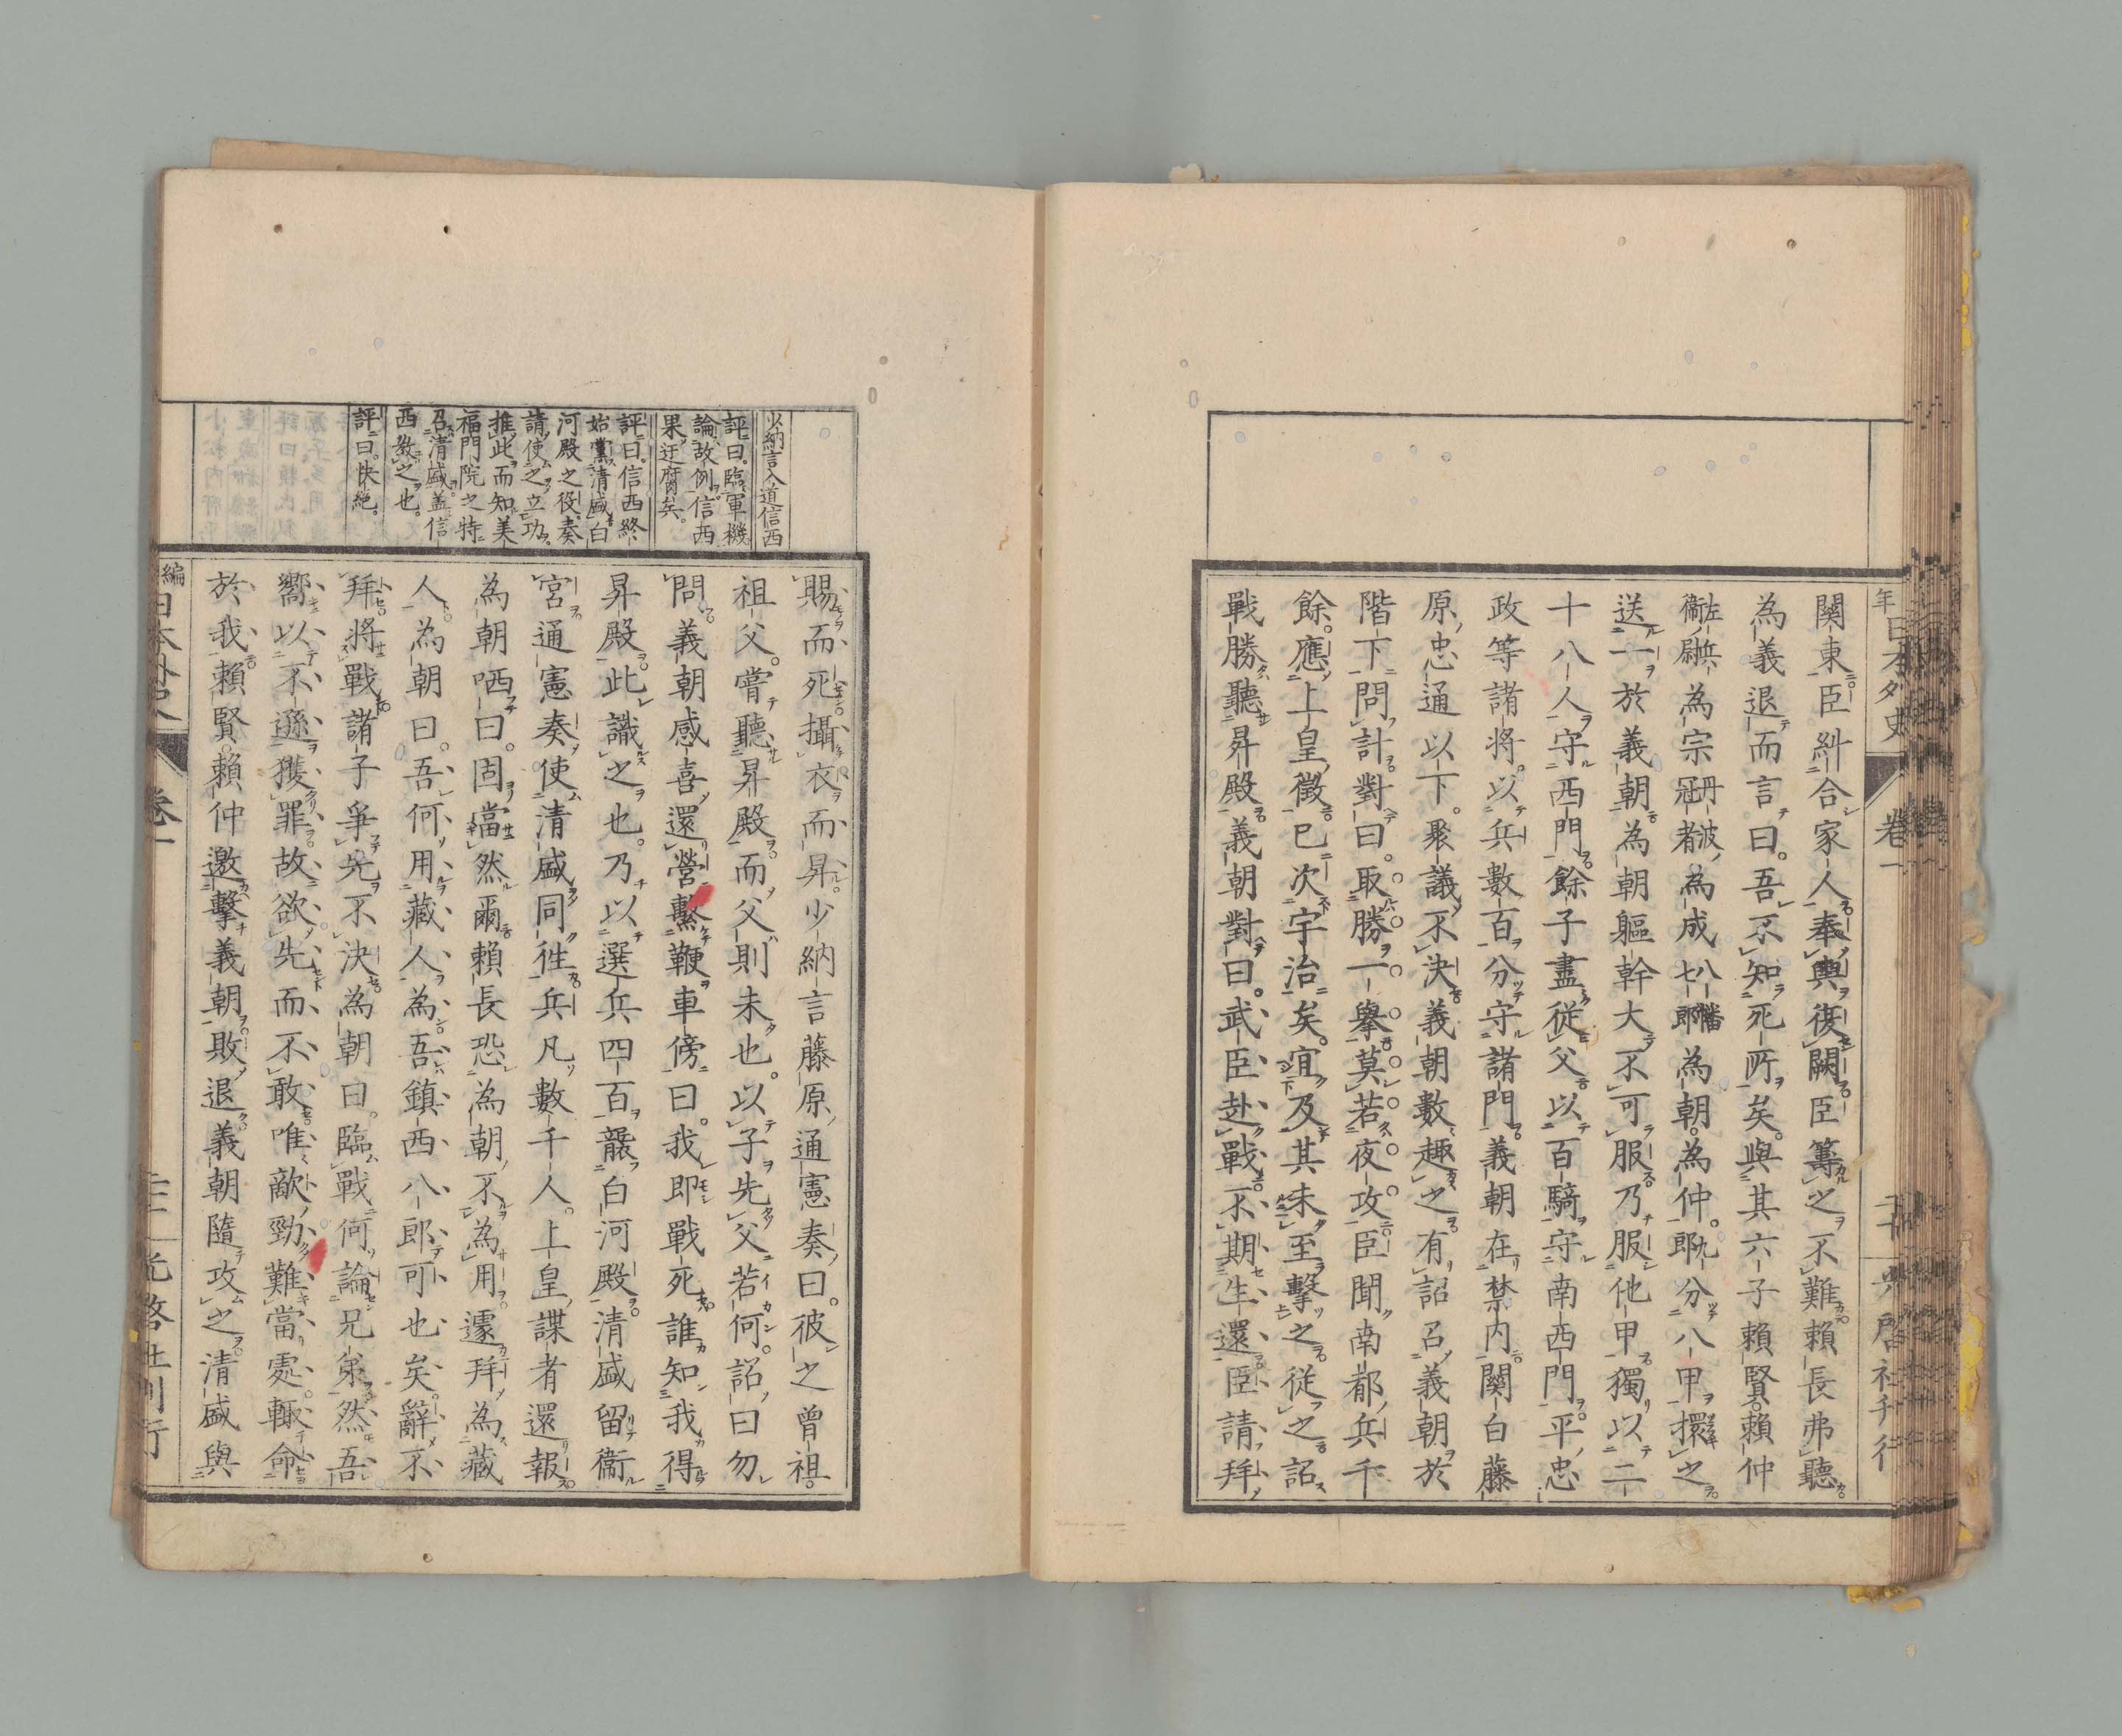 關東臣糾合家人奉輿復闕臣籌之不難賴長弗聽
為義退而言曰吾不知死所矣與其六子賴賢賴仲
左兵衞尉為宗丹波冠者為成八幡七郎為朝為仲九郎分八甲擐之
送一於義朝為朝軀幹大不可服乃服他甲獨以二
十八人守西門餘子盡從父以百騎守南西門平忠
政等諸將以兵數百分守諸門義朝在禁内關白藤
原忠通以下聚議不決義朝數趣之有詔召義朝於
階下問計對曰取勝一擧莫若夜攻臣聞南都兵千
餘應上皇徵已次宇治矣宜及其未至擊之從之詔
戰勝聽昇殿義朝對曰武臣赴戰不期生還臣請拜
卷一
少納言入道信西
評曰臨軍機
論故例信西
果迂腐矣
評曰信西終
始黨清盛白
河殿之役奏
請使之立功
推此而知美
福門院之特
召清盛蓋信
西敎之也
評曰快絕
賜而死攝衣而昇少納言藤原通憲奏曰彼之曾祖
祖父嘗聽昇殿而父則未也以子先父若何詔曰勿
問義朝感喜還營繫鞭車傍曰我即戰死誰知我得
昇殿此識之也乃以選兵四百襲白河殿清盛留衞
宮通憲奏使清盛同徃兵凡數千人上皇諜者還報
為朝哂曰固當然爾賴長恐為朝不為用遽拜為藏
人為朝曰吾何用藏人為吾鎮西八郎可也矣辭不
拜將戰諸子爭先不決為朝曰臨戰何論兄弟然吾
嚮以不遜獲罪故欲先而不敢唯敵勁難當處輙命
於我賴賢賴仲邀擊義朝敗退義朝隨攻之清盛與
卷一